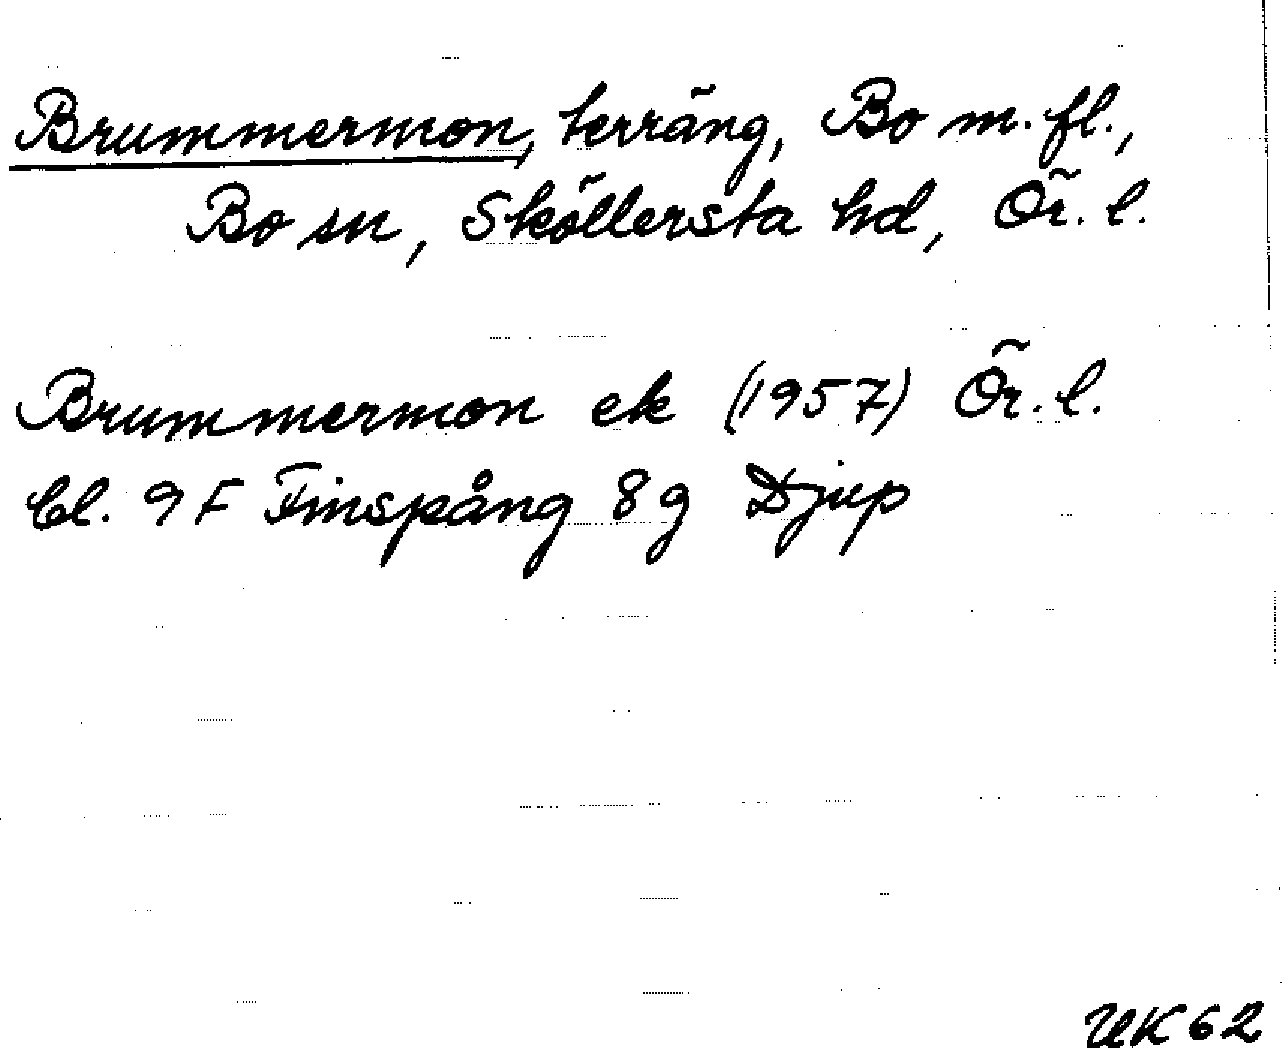 Brummermon, terräng, Bo m. fl.,
Bo sn, Sköllersta hd, Ör. l.
Brummermon ek (1957) Ör. l.
bl. 9 F Finspång 8 g Djup
UK 62